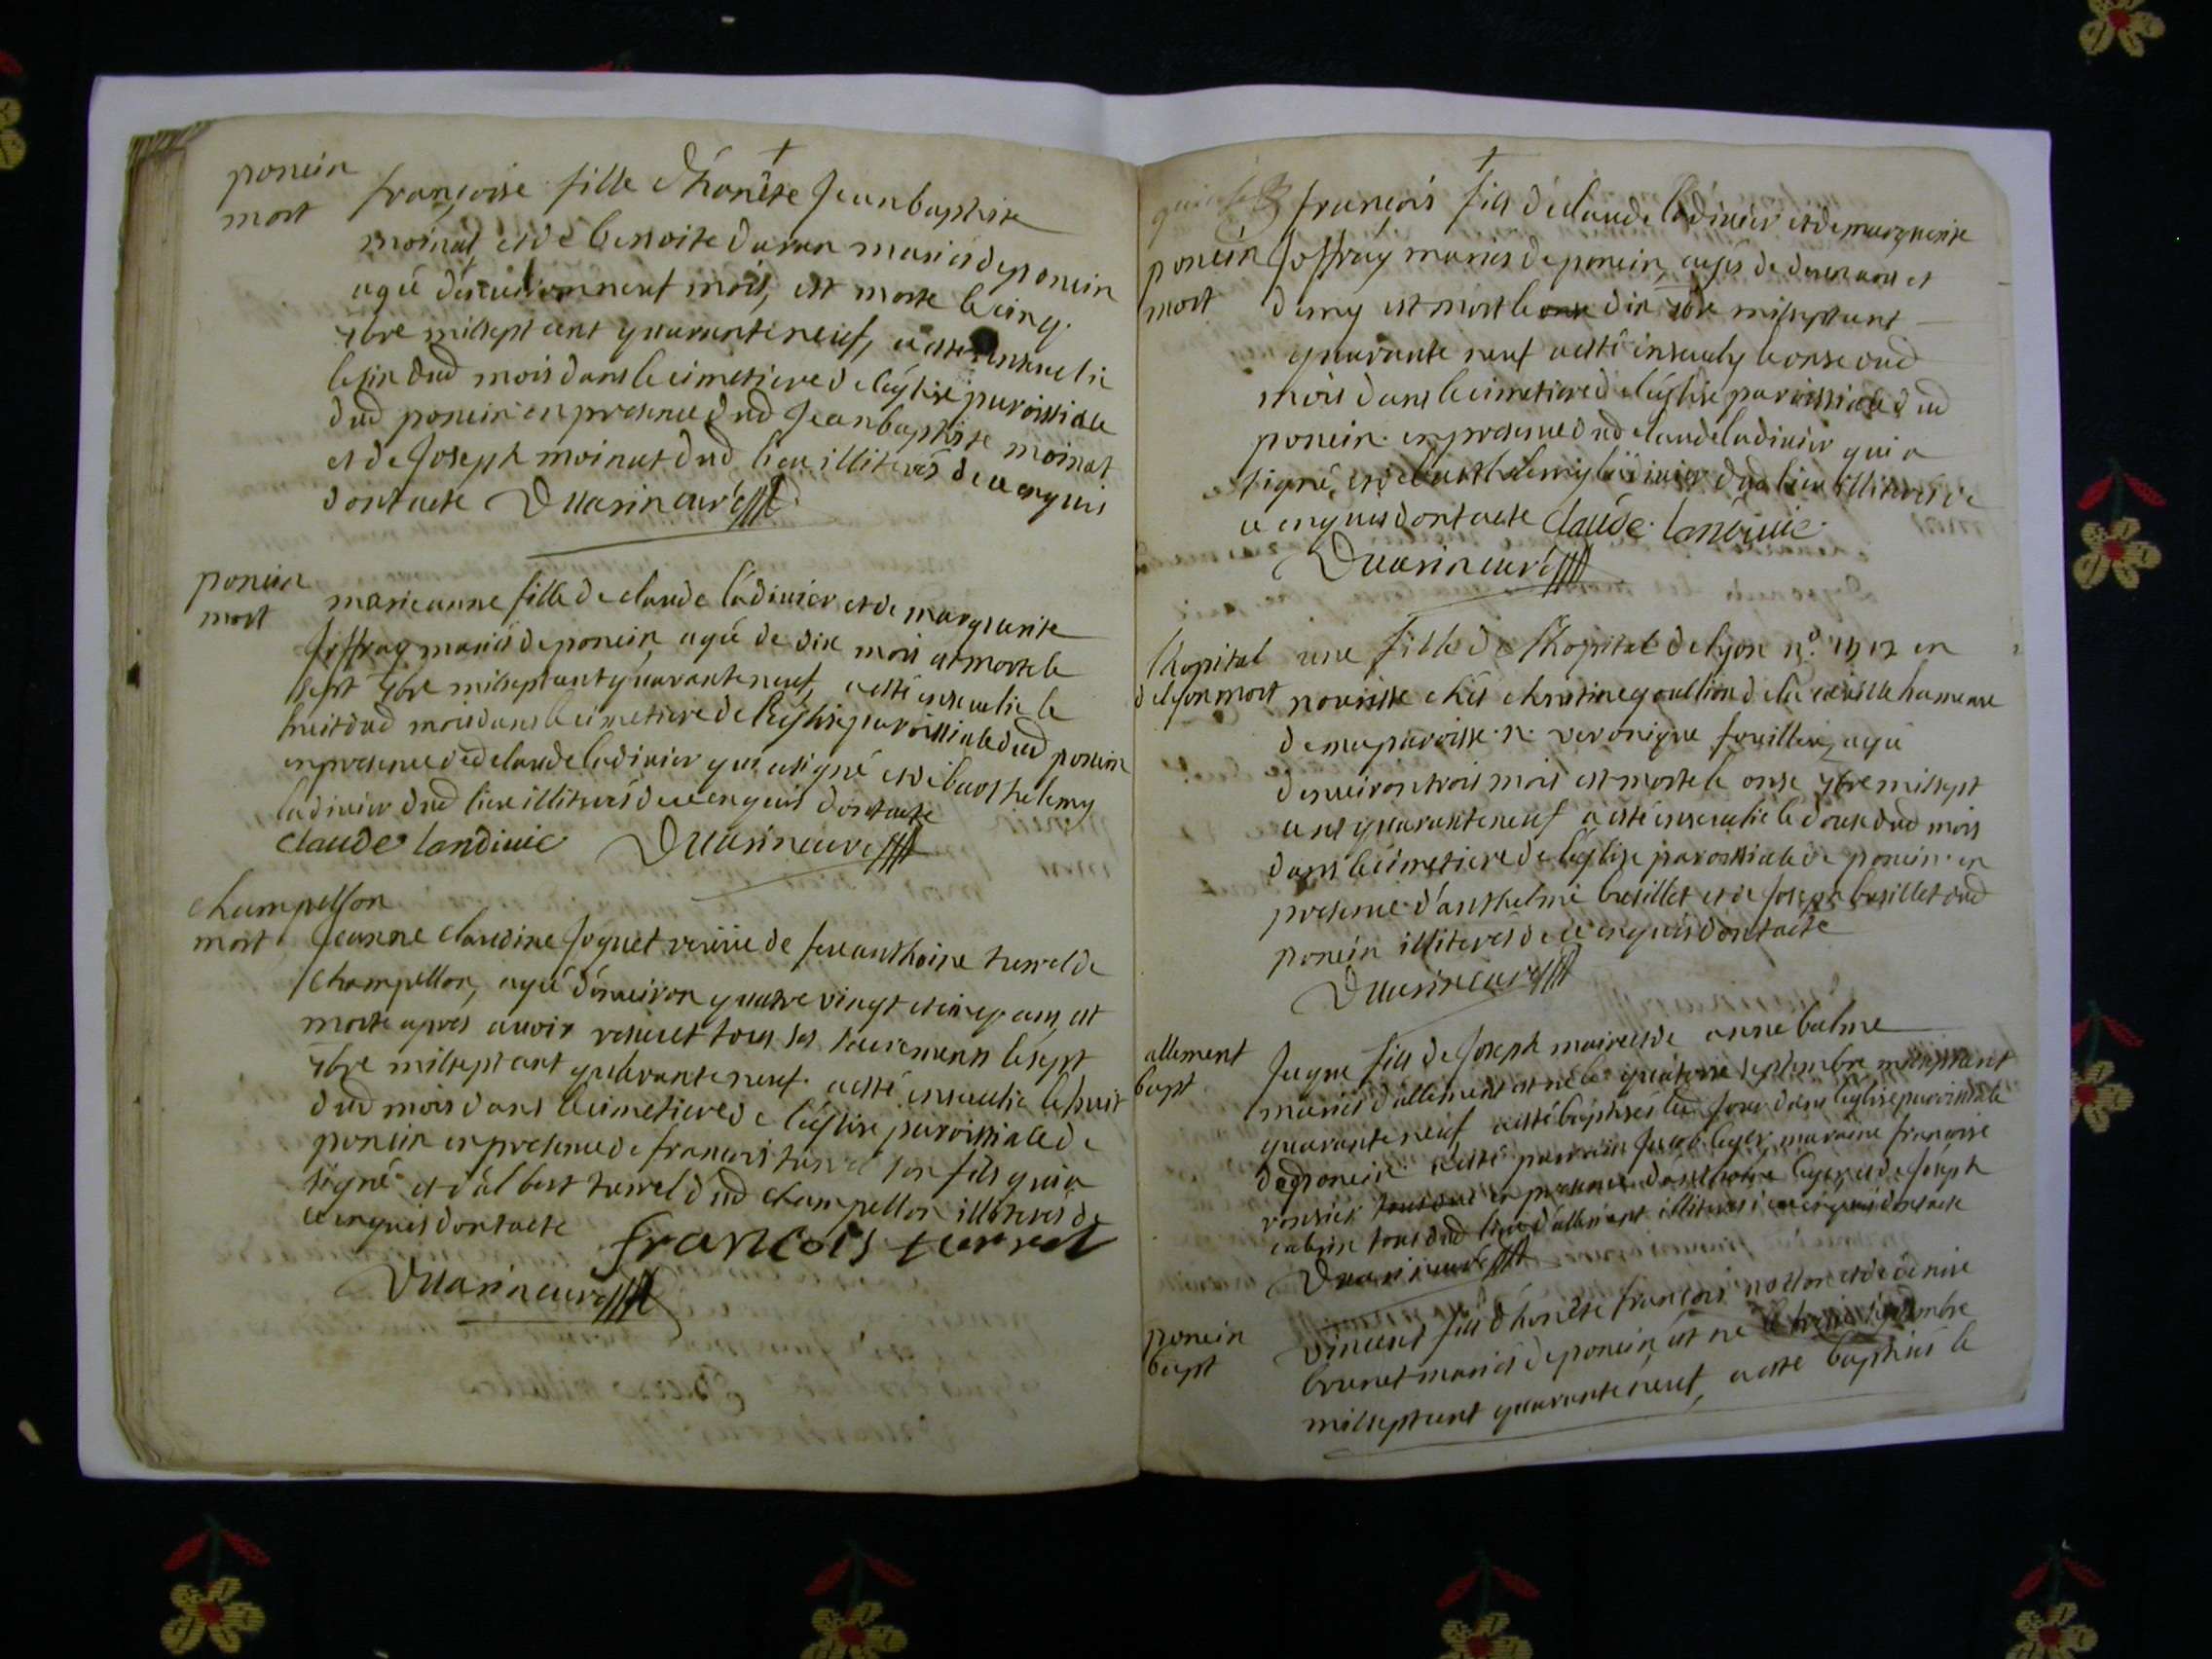 ponein
mort
françoise fille d'honête Jean baptiste
moinat, et de benoite duran mariés de ponein
agée d'environ neuf mois, est morte le cinq
7bre mil sept cent quarante neuf, a esté ensevelie
le six dud mois dans le cimetiere de l'église paroissiale
dud ponein en presence dud Jean baptiste moinat
et de Joseph moinat dud lieu illiterés de ce enquis
dont acte curé
ponein
mort
marieanne fille de claude ladivier et de marguerite
Joffray mariés de ponein, agée de dix mois est morte le
sept 7bre mil sept cent quarante neuf, a esté ensevelie le
huit dud mois dans le cimetiere de l'église paroissiale dud ponein
en presence dud claude ladivier qui a signé et de barthelemy
ladivier dud lieu illiterés de ce enquis dont acte
claude landivie curé
champellon
mort
Jeanne claudine Joguet veuve de feu anthoine turrel de
champellon, agée d'environ quatre vingt et cinq ans, est
morte apres avoir receu tous ses sacrements le sept
7bre mil sept cent quarante neuf. a esté ensevelie le huit
dud mois dans le cimetiere de l'église paroissiale de
ponein en presence de francois turrel son fils qui a
signé et d'albert turrel dud champellon illiterés de
ce enquis dont acte francois turrel
curé
ponein
mort
françois fils de claude ladivier et de marguerite
Joffray mariés de ponein, agés de deux ans et
demy est mort le dix 7bre mil sept cent
quarante neuf a esté ensevely le onse dud
mois dans le cimetiere de l'église paroissiale dud
ponein en presence dud claude ladivier qui a
signé, et de barthelemy ladivier dud lieu illiterés de
ce enquis dont acte claude landivie
curé
l'hopital
de lyon mort
une fille de l'hopital de lyon n°. en
nourisse chés christine goullion de la hameau
de ma paroisse. n. veronique agée
d'environ trois mois est morte le onse 7bre mil sept
cent quarante neuf a esté ensevelie le douse dud mois
dans le cimetiere de l'église paroissiale de ponein en
presence d'anthelme bresillet et de Joseph bresillet dud
ponein illiterés de ce enquis dont acte
curé
allement
bapt
Juque fils de Joseph maire et de anne balme
mariés d'allement est né le quatorse septembre mil sept cent
quarante neuf a esté baptisés led jour dans l'église paroissiale
de ponein a esté parrain Jacob leger, maraine françoise
en presence d'anthoine leger et de Joseph
tous dud lieu d'allement illiterés de ce enquis dont acte
curé
ponein
bapt
vincent fils d'honête francois et de denise
brunet mariés de ponein, est né septembre
mil sept cent quarante neuf, a esté baptisés le